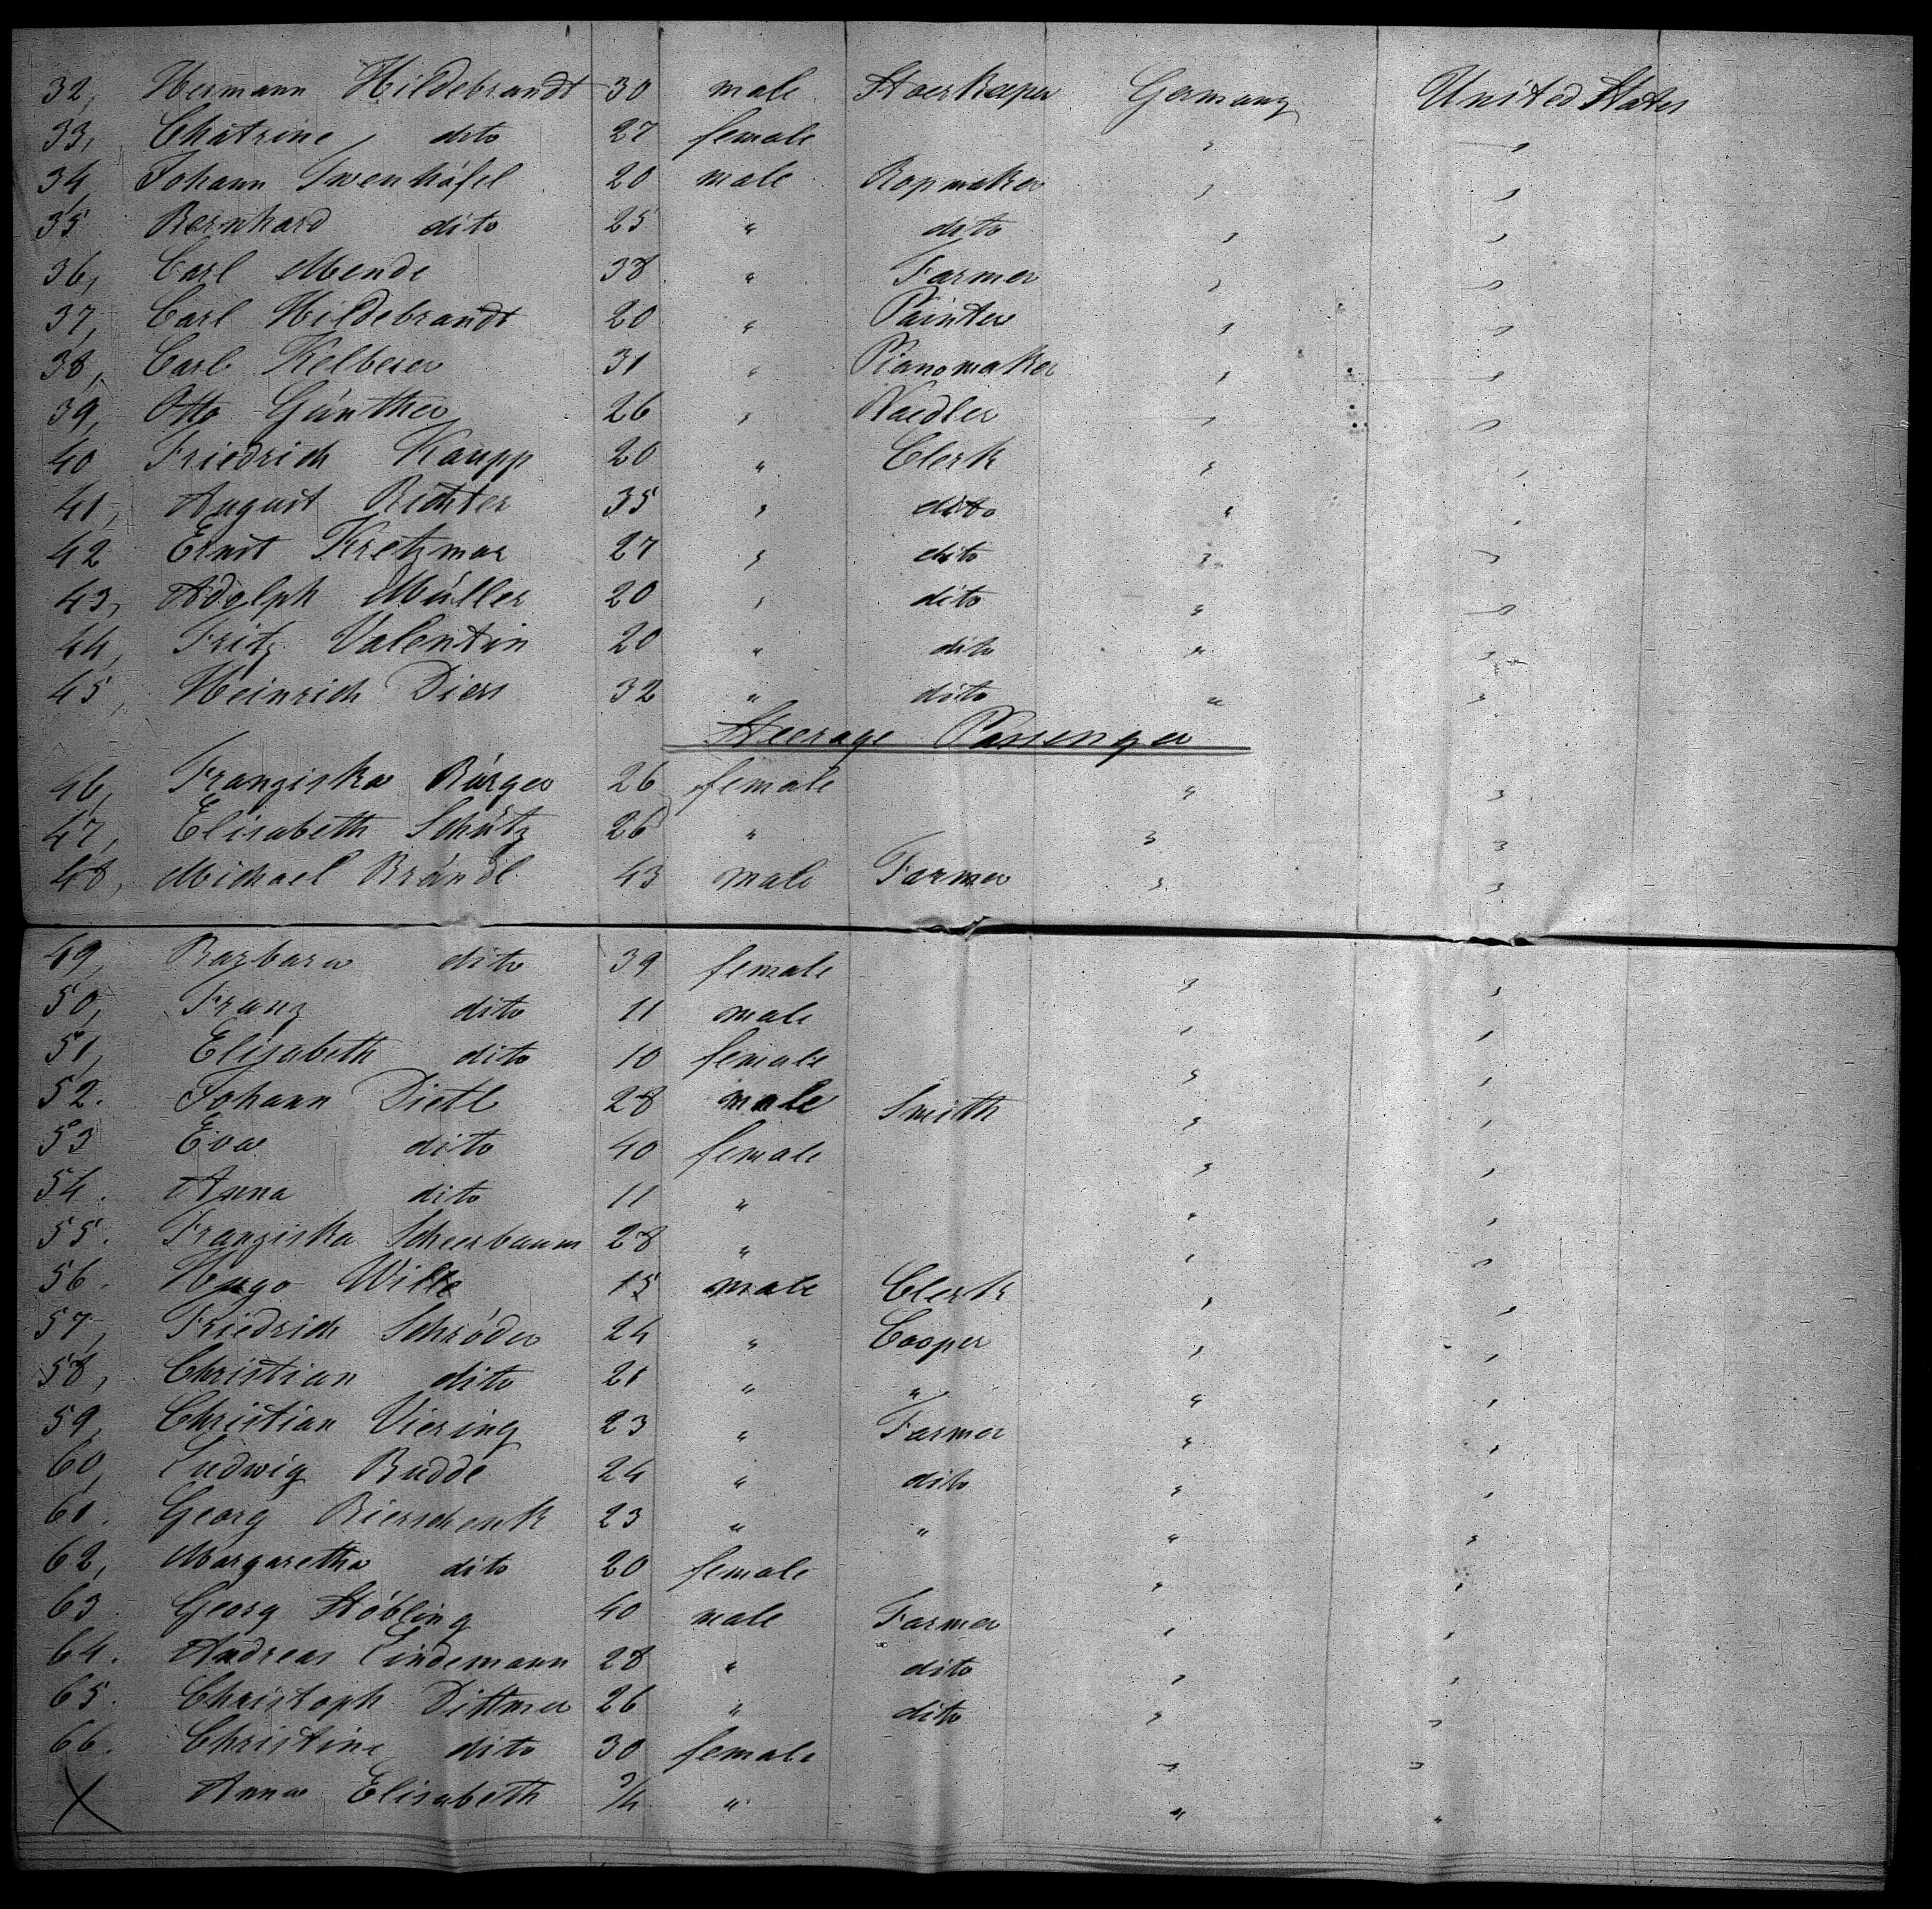 32, Hermann Hildebrandt 30 male Stoerkeeper Germany United States
33, Chatrine dito 27 female " "
34, Johann Swenhöfel 20 male Ropmaker " "
35 Bernhard dito 25 " dito " "
36, Carl Mende 38 " Farmer " "
37, Carl Hildebrandt 20 " Painter " "
38, Carl Kelberer 31 " Pianomaker " "
39, Otto Günther 26 " Naedler " "
40 Friedrich Kaupp 20 " Clerk " "
41, August Richter 35 " dito " "
42 Ernst Kretzmar 27 " dito " "
43, Adolph Müller 20 " dito " "
44, Fritz Valentin 20 " dito " "
45, Heinrich Diers 32 " dito " "
Steerage Passenger
46, Franziska Bürger 26 female " "
47, Elisabeth Schütz 26 " " "
48, Michael Brändl 43 male Farmer " "
49, Barbara dito 39 female " "
50, Franz dito 11 male " "
51, Elisabeth dito 10 female " "
52. Johann Dietl 28 male Smith " "
53 Eva dito 40 female " "
54. Anna dito 11 " " "
55. Franziska Scheerbaum 28 " " "
56. Hugo Wille 15 male Clerk " "
57, Friedrich Schröder 24 " Cooper " "
58, Christian dito 21 " " " "
59, Christian Viering 23 " Farmer " "
60, Ludwig Budde 24 " dito " "
61. Georg Bierschenk 23 " " " "
62, Margaretha dito 20 female " "
63 Georg Stöbling 40 male Farmer " "
64. Andreas Lindemann 28 " dito " "
65. Christoph Dittmer 26 " dito " "
66. Christine dito 30 female " "
X Anna Elisabeth 3/4 " " "